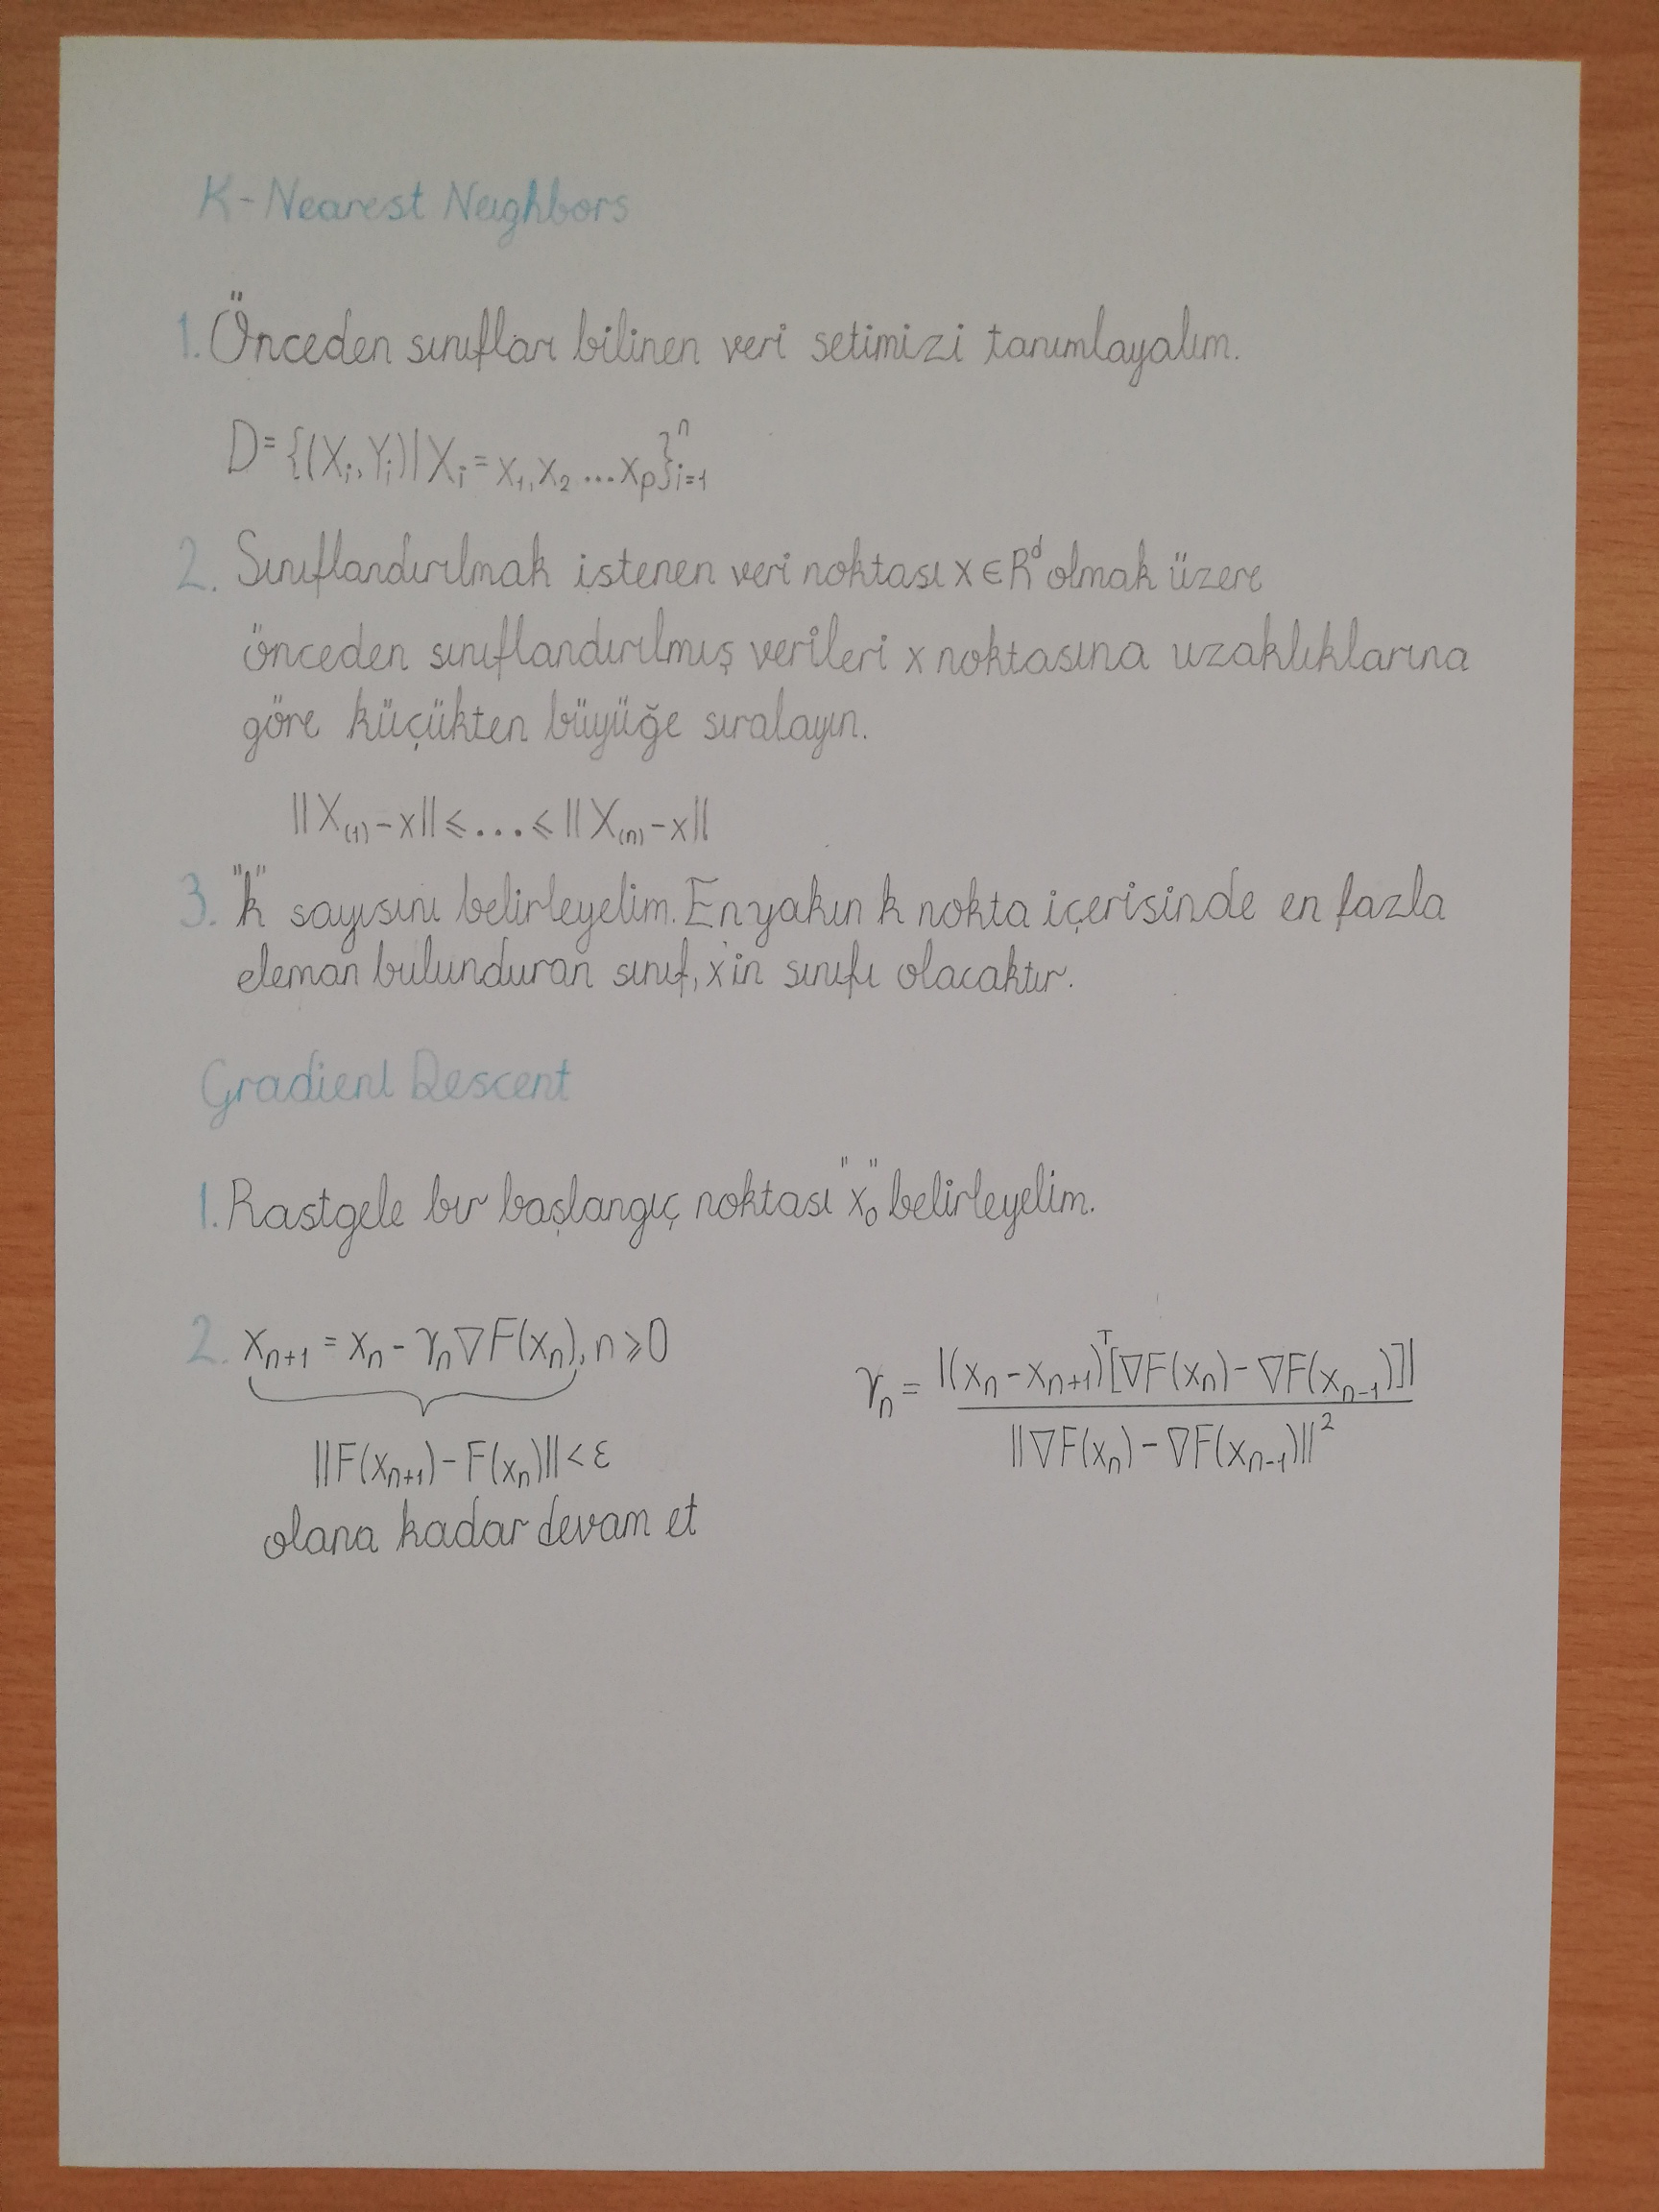 K-Nearest Neighbors
1. Önceden sınıfları bilinen veri setimizi tanımlayalım.
D={(Xᵢ,Yᵢ)|Xᵢ=x₁,x₂...xₚ}ⁿᵢ₌₁
2. Sınıflandırılmak istenen veri noktası x∈Rᵈ olmak üzere
önceden sınıflandırılmış verileri x noktasına uzaklıklarına
göre küçükten büyüğe sıralayın.
||X₍₁₎-x||⩽...⩽||X₍ₙ₎-x||
3. "k" sayısını belirleyelim. En yakın k nokta içerisinde en fazla
eleman bulunduran sınıf, x'in sınıfı olacaktır.
Gradient Descent
1. Rastgele bir başlangıç noktası "x₀" belirleyelim.
2. xₙ₊₁ = xₙ - γₙ∇F(xₙ), n⩾0
γₙ = |(xₙ-xₙ₊₁)ᵀ[∇F(xₙ)-∇F(xₙ₋₁)]|
||∇F(xₙ)-∇F(xₙ₋₁)||²
||F(xₙ₊₁)-F(xₙ)||<ε
olana kadar devam et